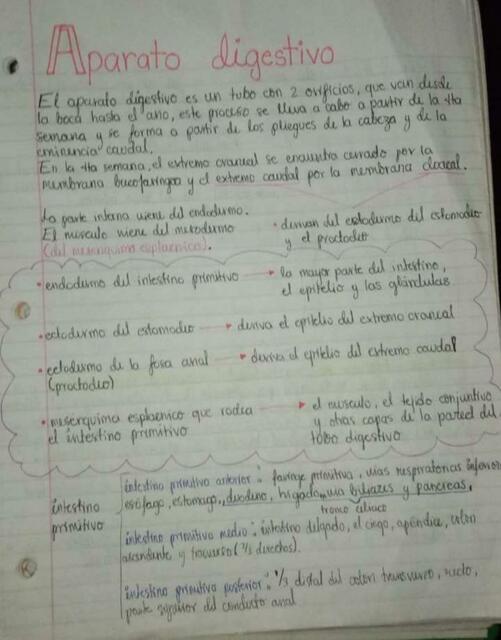 Aparato digestivo
El aparato digestivo es un tubo con 2 orificios, que van desde
la boca hasta el ano, este proceso se lleva a cabo a partir de la 4ta
semana y se forma a partir de los pliegues de la cabeza y de la
eminencia caudal.
En la 4ta semana, el extremo craneal se encuentra cerrado por la
membrana bucofaringea y el extremo caudal por la membrana cloacal.
La parte interna viene del endodermo.
El musculo viene del mesodermo
(del mesenquima esplacnico).
• derivan del ectodermo del estomodeo
y el proctodeo
• endodermo del intestino primitivo → la mayor parte del intestino,
el epitelio y las glándulas
• ectodermo del estomodeo → deriva el epitelio del extremo craneal
• ectodermo de la fosa anal → deriva el epitelio del extremo caudal
(proctodeo)
• mesenquima esplacnico que rodea → el musculo, el tejido conjuntivo
el intestino primitivo y otras capas de la pared del
tubo digestivo
intestino primitivo anterior: faringe primitiva, vias respiratorias inferiores
esófago, estomago, duodeno, higado, via biliares y pancreas,
tronco celiaco
intestino
primitivo
intestino primitivo medio: intestino delgado, el ciego, apéndice, colon
ascendente y transverso (2/3 derechos).
intestino primitivo posterior: 1/3 distal del colon transverso, recto,
parte superior del conducto anal